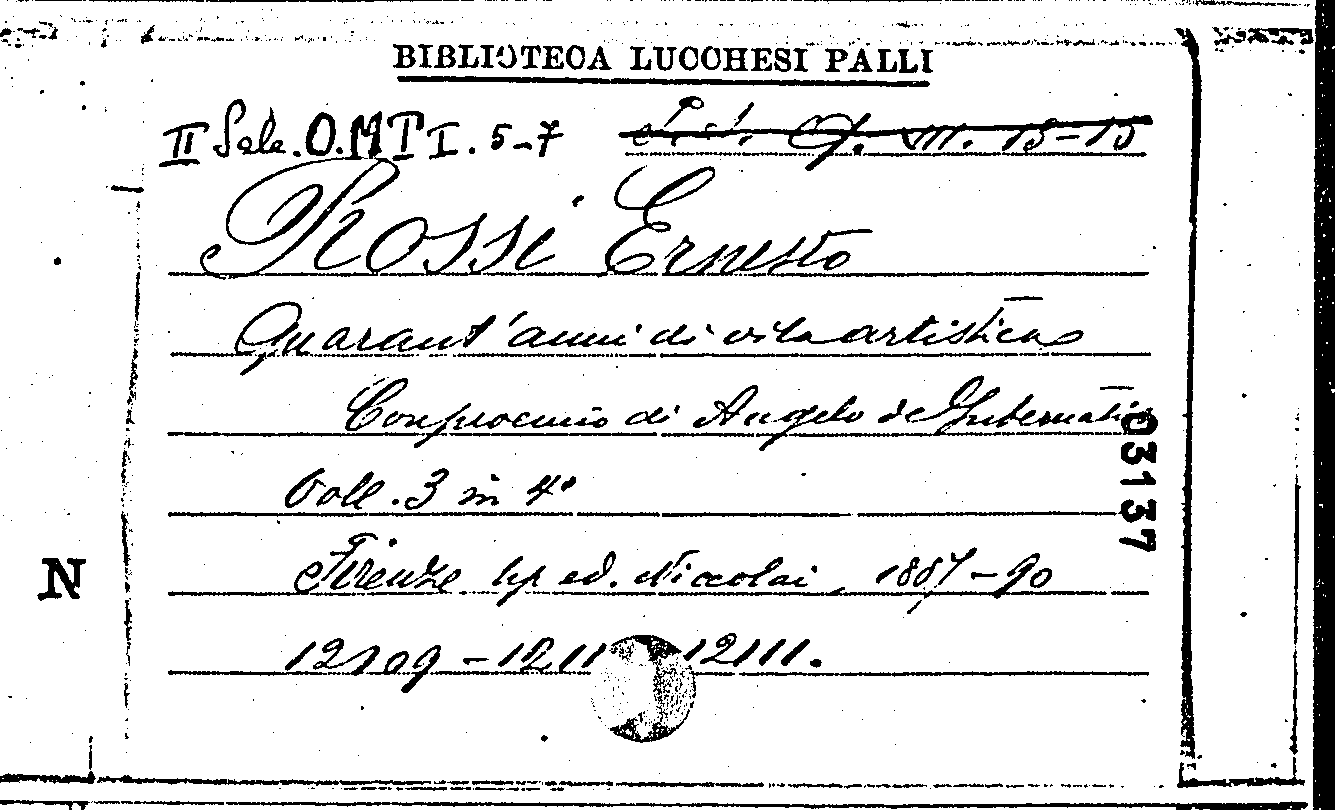 BIBLIOTECA LUCCHESI PALLI
II Sala. O.MT I. 5-7 VII. 13-15
Rossi Ernesto
Quarant'anni di vita artistica
Con proemio di Angelo de Gubernatis
Voll. 3 in 4°
Firenze tip ed. Niccolai, 1887-90
12109 - 1211 12111.
03137
N